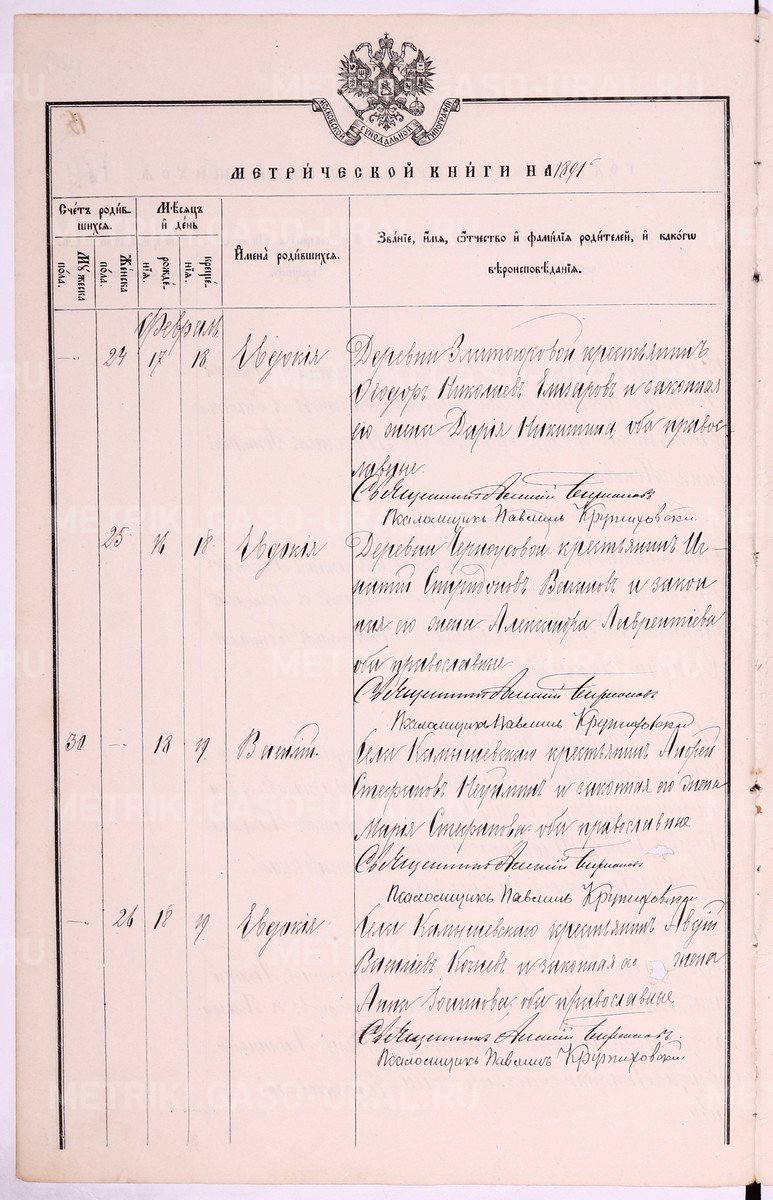 МОСКОВСКОЙ СѴНОДАЛЬНОЙ ТИПОГРАФІИ
МЕТРИ́ЧЕСКОЙ КНИ́ГИ НА 1891 г
Сче́тъ роди́вшихся.
Мѣ́сяцъ и҆ де́нь
И҆мена̀ роди́вшихся.
Зва́нїе, и҆́мѧ, ѻ҆́тчество и҆ фами́лїѧ роди́телей, и҆ како́гѡ
вѣроисповѣ́данїѧ.
Му́жеска пола.
Же́нска пола.
рожде́нїѧ.
креще́нїѧ.
Февраль
— 24 17 18 Евдокія Деревни крестьянинъ
Ѳеодоръ Николаевъ Елизаровъ и законная
его жена Дарія Никитина, оба право-
славные.
Священникъ Алексій
Псаломщикъ Павелъ Кружиховскій.
25 16 18 Евдокія Деревни Черноусовой крестьянинъ Иг-
натій Спиридоновъ Вагановъ и закон
ная его жена Александра Лаврентіева
оба православные.
Священникъ Алексій
Псаломщикъ Павелъ Кружиховскій
30 — 18 19 Василій. Села Камышевскаго крестьянинъ Андрей
Стефановъ Неуйминъ и законная его жена
Марія Стефанова, оба православные
Священникъ Алексій
Псаломщикъ Павелъ Кружиховскій
— 26 18 19 Евдокія Села Камышевскаго крестьянинъ Авдій
Василіевъ и законная его жена
Анна оба православные.
Священникъ Алексій
Псаломщикъ Павелъ Кружиховскій.
METRIKI.GASO-URAL.RU